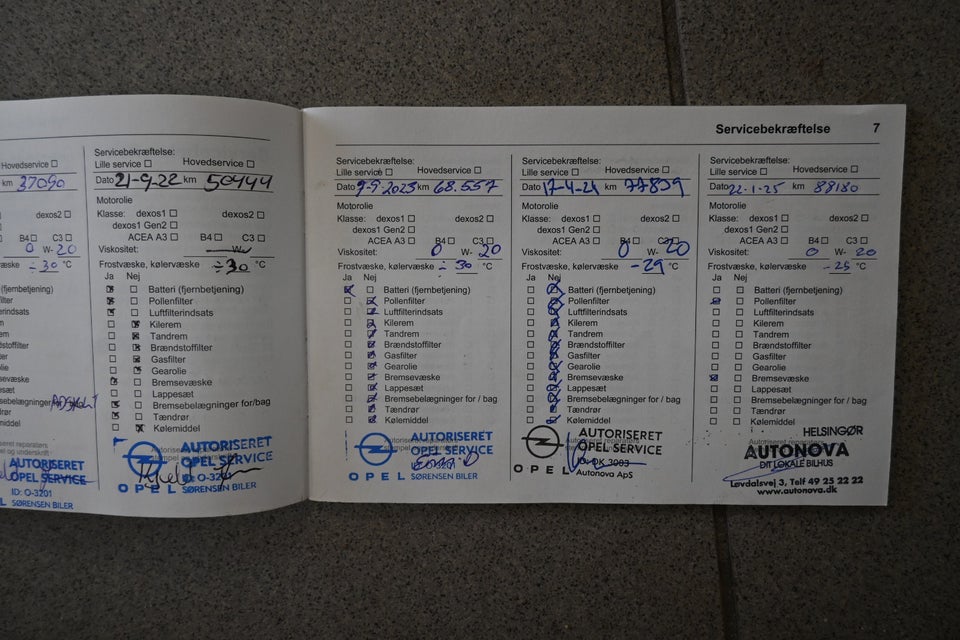 Servicebekræftelse 7
Hovedservice
km 37090
dexos2
B4 C3
0 W- 20
væske ÷ 30 °C
ID: O-3201
SØRENSEN BILER
Servicebekræftelse:
Lille service Hovedservice
Dato 21-9-22 km 50444
Motorolie
Klasse: dexos1 dexos2
dexos1 Gen2
ACEA A3 B4 C3
Viskositet: W-
Frostvæske, kølervæske ÷30 °C
Ja Nej
Batteri (fjernbetjening)
Pollenfilter
Luftfilterindsats
Kilerem
Tandrem
Brændstoffilter
Gasfilter
Gearolie
Bremsevæske
Lappesæt
Bremsebelægninger for/bag
Tændrør
Kølemiddel
AUTORISERET
OPEL SERVICE
OPEL SØRENSEN BILER
Servicebekræftelse:
Lille service Hovedservice
Dato 9-9-2023 km 68.557
Motorolie
Klasse: dexos1 dexos2
dexos1 Gen2
ACEA A3 B4 C3
Viskositet: 0 W- 20
Frostvæske, kølervæske ÷ 30 °C
Ja Nej
Batteri (fjernbetjening)
Pollenfilter
Luftfilterindsats
Kilerem
Tandrem
Brændstoffilter
Gasfilter
Gearolie
Bremsevæske
Lappesæt
Bremsebelægninger for / bag
Tændrør
Kølemiddel
AUTORISERET
OPEL SERVICE
OPEL SØRENSEN BILER
Servicebekræftelse:
Lille service Hovedservice
Dato 17-4-24 km 77839
Motorolie
Klasse: dexos1 dexos2
dexos1 Gen2
ACEA A3 B4 C3
Viskositet: 0 W- 20
Frostvæske, kølervæske -29 °C
Ja Nej
Batteri (fjernbetjening)
Pollenfilter
Luftfilterindsats
Kilerem
Tandrem
Brændstoffilter
Gasfilter
Gearolie
Bremsevæske
Lappesæt
Bremsebelægninger for / bag
Tændrør
Kølemiddel
AUTORISERET
OPEL SERVICE
ID: DK 3003
OPEL Autonova ApS
Servicebekræftelse:
Lille service Hovedservice
Dato 22-1-25 km 88180
Motorolie
Klasse: dexos1 dexos2
dexos1 Gen2
ACEA A3 B4 C3
Viskositet: 0 W- 20
Frostvæske, kølervæske -25 °C
Ja Nej
Batteri (fjernbetjening)
Pollenfilter
Luftfilterindsats
Kilerem
Tandrem
Brændstoffilter
Gasfilter
Gearolie
Bremsevæske
Lappesæt
Bremsebelægninger for / bag
Tændrør
Kølemiddel
HELSINGØR
AUTONOVA
DIT LOKALE BILHUS
Løvdalsvej 3, Telf 49 25 22 22
www.autonova.dk